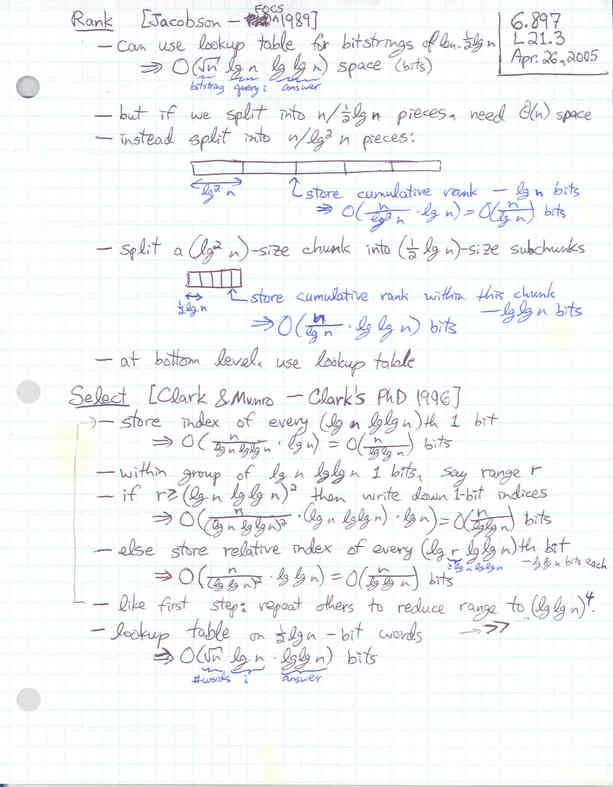 Rank [Jacobson – FOCS 1989]
6.897
L21.3
Apr. 26, 2005
– can use lookup table for bitstrings of len. ½ lg n
⇒ O(√n lg n lg lg n) space (bits)
bitstring query i answer
– but if we split into n/½ lg n pieces, need Θ(n) space
– instead split into n/lg² n pieces:
lg² n
store cumulative rank – lg n bits
⇒ O(n/lg² n · lg n) = O(n/lg n) bits
– split a (lg² n)-size chunk into (½ lg n)-size subchunks
½ lg n
store cumulative rank within this chunk
– lg lg n bits
⇒ O(n/lg n · lg lg n) bits
– at bottom level, use lookup table
Select [Clark & Munro – Clark's PhD 1996]
– store index of every (lg n lg lg n)th 1 bit
⇒ O(n/lg n lg lg n · lg n) = O(n/lg lg n) bits
– within group of lg n lg lg n 1 bits, say range r
– if r ≥ (lg n lg lg n)² then write down 1-bit indices
⇒ O(n/(lg n lg lg n)² · (lg n lg lg n) · lg n) = O(n/lg lg n) bits
– else store relative index of every (lg r lg lg n)th bit
– lg lg n bits each
⇒ O(n/(lg lg n)² · lg lg n) = O(n/lg lg n) bits
– like first step: repeat others to reduce range to (lg lg n)⁴.
– lookup table on ½ lg n – bit words
⇒ O(√n lg n · lg lg n) bits
#words i answer